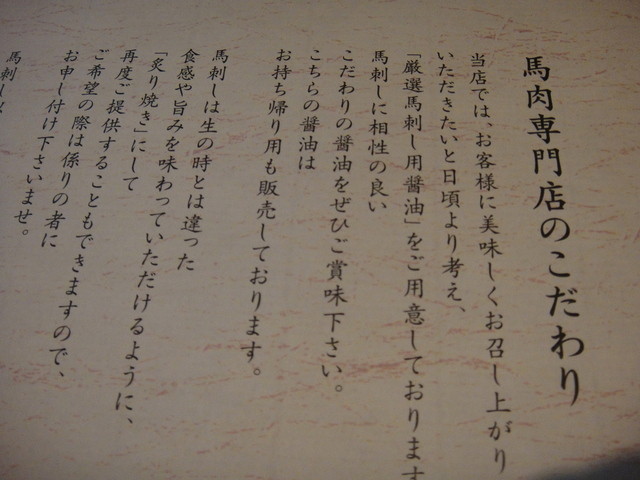 馬肉専門店のこだわり
当店では、お客様に美味しくお召し上がり
いただきたいと日頃より考え、
「厳選馬刺し用醤油」をご用意しております
馬刺しに相性の良い
こだわりの醤油をぜひご賞味下さい。
こちらの醤油は
お持ち帰り用も販売しております。
馬刺しは生の時とは違った
食感や旨みを味わっていただけるように、
「炙り焼き」にして
再度ご提供することもできますので、
ご希望の際は係りの者に
お申し付け下さいませ。
馬刺し